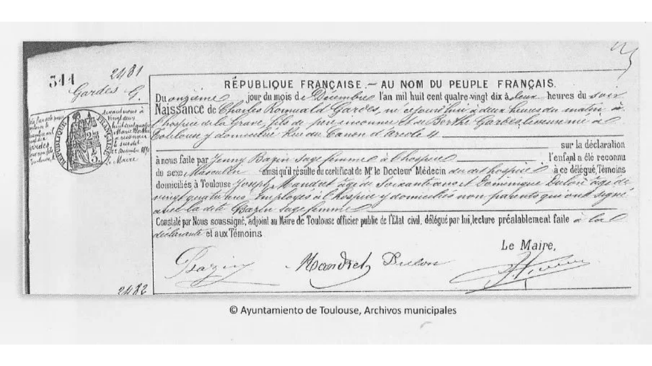 2481
511
Gardes G.
RÉPUBLIQUE FRANÇAISE. — AU NOM DU PEUPLE FRANÇAIS.
Du onzième jour du mois de Décembre l'an mil huit cent quatre-vingt dix heures du soir
Naissance de Charles Romuald Gardes, né ce jourd'hui à deux heures du matin, à
l'hospice de la Grave, fils de père inconnu et de Berthe Gardes à
Toulouse y domiciliée Rue du Canon d'Arcole 4
sur la déclaration
à nous faite par Jenny Bazin sage femme à l'hospice l'enfant a été reconnu
du sexe Masculin ainsi qu'il résulte du certificat de Mr le Docteur Médecin du dit hospice à ce délégué, Témoins
domiciliés à Toulouse Joseph Mandret âgé de soixante et Dominique âgé de
vingt employés à l'hospice y domiciliés non parents qui ont signé
avec la dite Bazin sage femme
Constaté par Nous soussigné, adjoint au Maire de Toulouse officier public de l'État civil, délégué par lui, lecture préalablement faite à la
déclarante et aux Témoins
Le Maire,
Bazin Mandret
2482
© Ayuntamiento de Toulouse, Archivos municipales